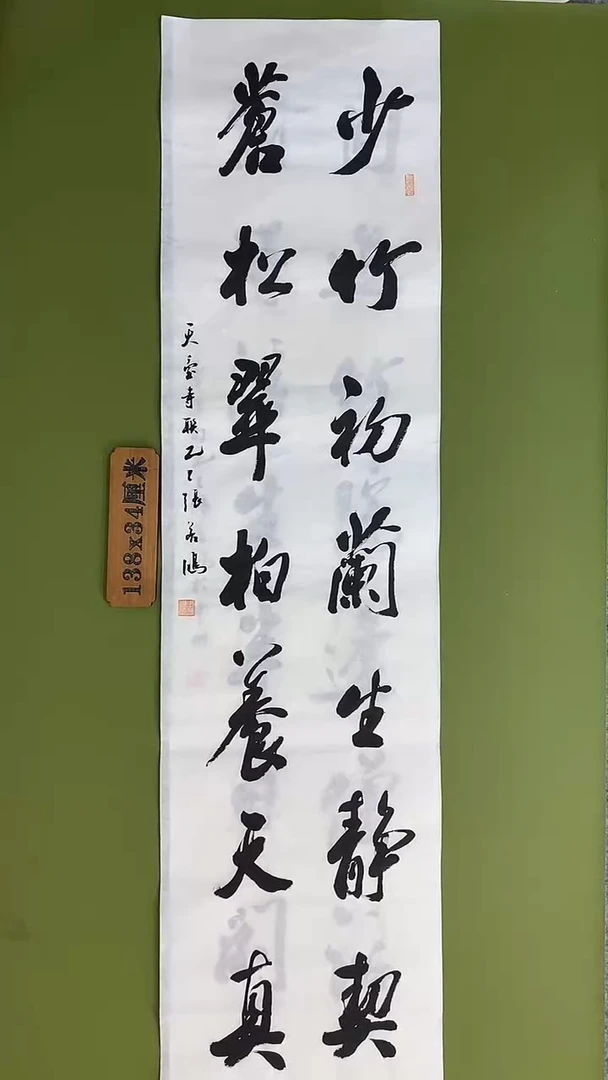 少竹初蘭生静契
蒼松翠柏養天真
天台寺联乙巳張若鴻
138x34厘米